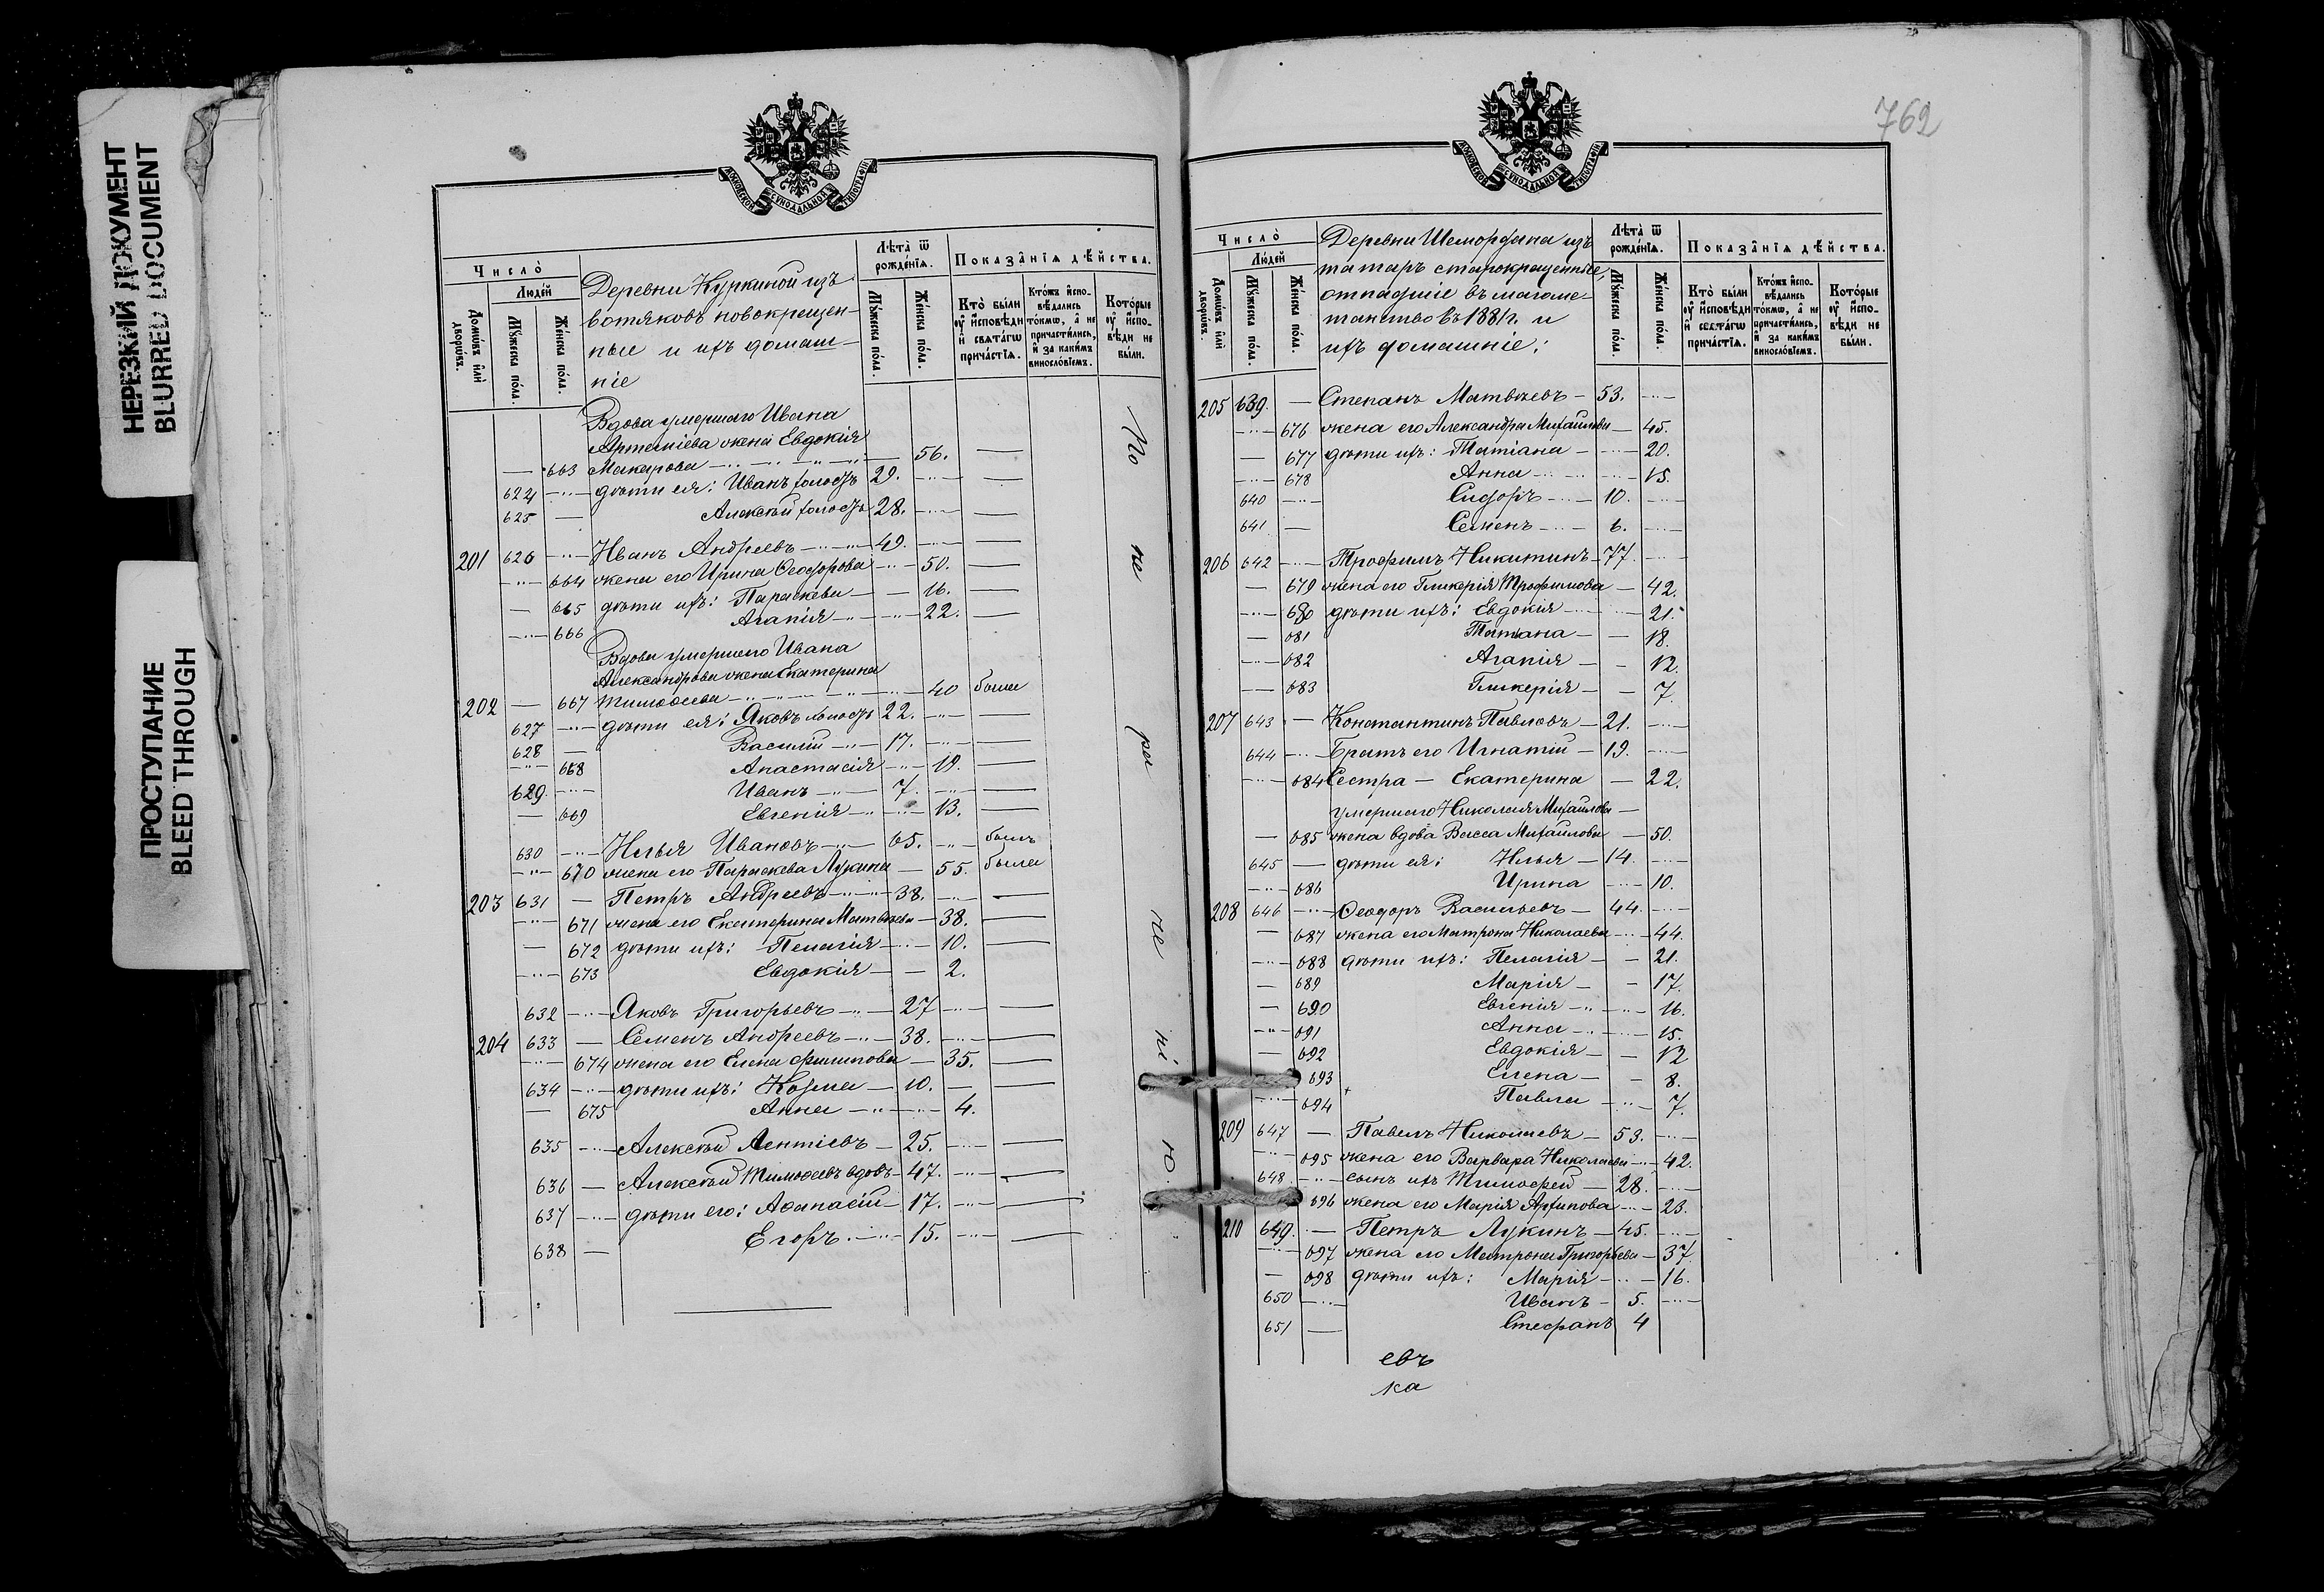 НЕРЕЗКИЙ ДОКУМЕНТ
BLURRED DOCUMENT
ПРОСТУПАНИЕ
BLEED THROUGH
МОСКОВСКОЙ СѴНОДАЛЬНОЙ ТИПОГРАФІИ
Число̀
Людей
Домѡвъ или дворѡвъ.
Мꙋжеска пола.
Женска пола.
Деревни Куркиной изъ
вотяковъ новокрещен-
ные и ихъ домаш-
ніе
Лѣта ѿ рожденїѧ.
Мꙋжеска пола.
Женска пола.
Показанїѧ дѣйства.
Кто были оу исповѣди и свѧтагѡ причастїѧ.
Ктожъ исповѣдались токмѡ, а не причастились, и за какимъ винословїемъ.
Которые оу исповѣди не были.
Вдова умершаго Ивана
Артеміева жена Евдокія
— 663 Макарова — 56. —
624 — дѣти ея: Иванъ холостъ 29. — —
625 — Алексѣй холостъ 28. — —
201 626 — Иванъ Андреевъ — 49. — —
— 664 жена его Ирина Ѳеодорова — 50. —
— 665 дѣти ихъ: Параскева — 16. —
— 666 Агапія — 22. —
Вдова умершаго Ивана
Александрова жена Екатерина
202 — 667 Тимоѳеева — 40 была
627 — дѣти ея: Яковъ холостъ 22. — —
628 — Василій — 17. — —
— 668 Анастасія — 19. —
629. — Иванъ — 7. — —
— 669 Евгенія — 13. —
630 — Илья Ивановъ — 65. — былъ
— 670 жена его Параскева Лукина — 55. была
203 631 — Петръ Андреевъ — 38. — —
— 671 жена его Екатерина Матвѣева — 38. —
— 672 дѣти ихъ: Пелагія — 10. —
— 673 Евдокія — 2.
632 — Яковъ Григорьевъ — 27 — —
204 633 — Семенъ Андреевъ — 38. — —
— 674 жена его Елена Филиппова — 35. —
634 — дѣти ихъ: Козма — 10. — —
— 675 Анна — 4.
635 — Алексѣй Леонтіевъ — 25. — —
636 — Алексѣй Тимоѳеевъ вдовъ — 47. — —
637 — дѣти его: Аѳанасій — 17. — —
638 — Егоръ — 15. — —
По
не
ра
не
ні
ю.
762
МОСКОВСКОЙ СѴНОДАЛЬНОЙ ТИПОГРАФІИ
Число̀
Людей
Домѡвъ или дворѡвъ.
Мꙋжеска пола.
Женска пола.
Деревни Шемордана изъ
татаръ старокрещенные,
отпадшіе въ магоме-
танство въ 1881 г. и
ихъ домашніе:
Лѣта ѿ рожденїѧ.
Мꙋжеска пола.
Женска пола.
Показанїѧ дѣйства.
Кто были оу исповѣди и свѧтагѡ причастїѧ.
Ктожъ исповѣдались токмѡ, а не причастились, и за какимъ винословїемъ.
Которые оу исповѣди не были.
205 639. — Степанъ Матвѣевъ — 53. —
— 676 жена его Александра Михайлова — 45.
— 677 дѣти ихъ: Татіана — 20.
— 678 Анна — 15.
640 — Сидоръ — 10. —
641 — Семенъ — 6. —
206 642 — Трофимъ Никитинъ — 77. —
— 679 жена его Гликерія Трофимова — 42.
— 680 дѣти ихъ: Евдокія — 21.
— 681 Татіана — 18.
— 682 Агапія — 12.
— 683 Гликерія — 7.
207 643 — Константинъ Павловъ — 21. —
644 — Братъ его Игнатій — 19. —
— 684 Сестра — Екатерина — 22.
умершаго Николая Михайлова —
— 685 жена вдова Васса Михайлова — 50.
645 — дѣти ея: Илья — 14. —
— 686 Ирина — 10.
208 646 — Ѳеодоръ Васильевъ — 44. —
— 687 жена его Матрона Николаева — 44.
— 688 дѣти ихъ: Пелагія — 21.
— 689 Марія — 17.
— 690 Евгенія — 16.
— 691 Анна — 15.
— 692 Евдокія — 12
693 Елена — 8.
— 694 Павла — 7.
209 647 — Павелъ Николаевъ — 53. —
— 695 жена его Варвара Николаева — 42.
648 — сынъ ихъ Тимоѳей — 28. —
696 жена его Марія Архипова — 23.
210 649. — Петръ Лукинъ — 45. —
— 697 жена его Матрона Григорьева — 37
— 698 дѣти ихъ: Марія — 16.
650 — Иванъ — 5. —
651 — Стефанъ 4
евъ
ка